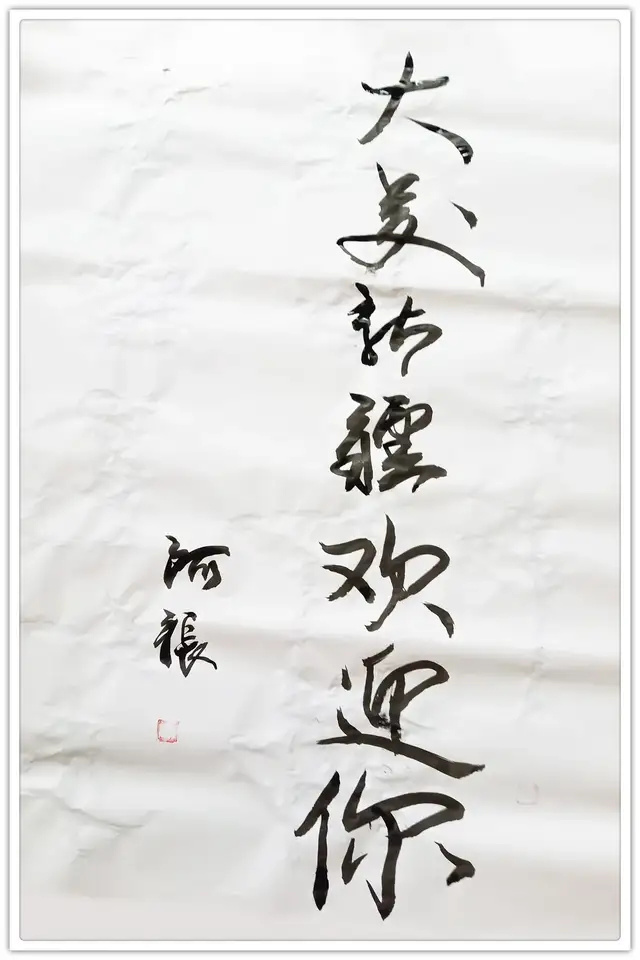 大美新疆欢迎你
阿張